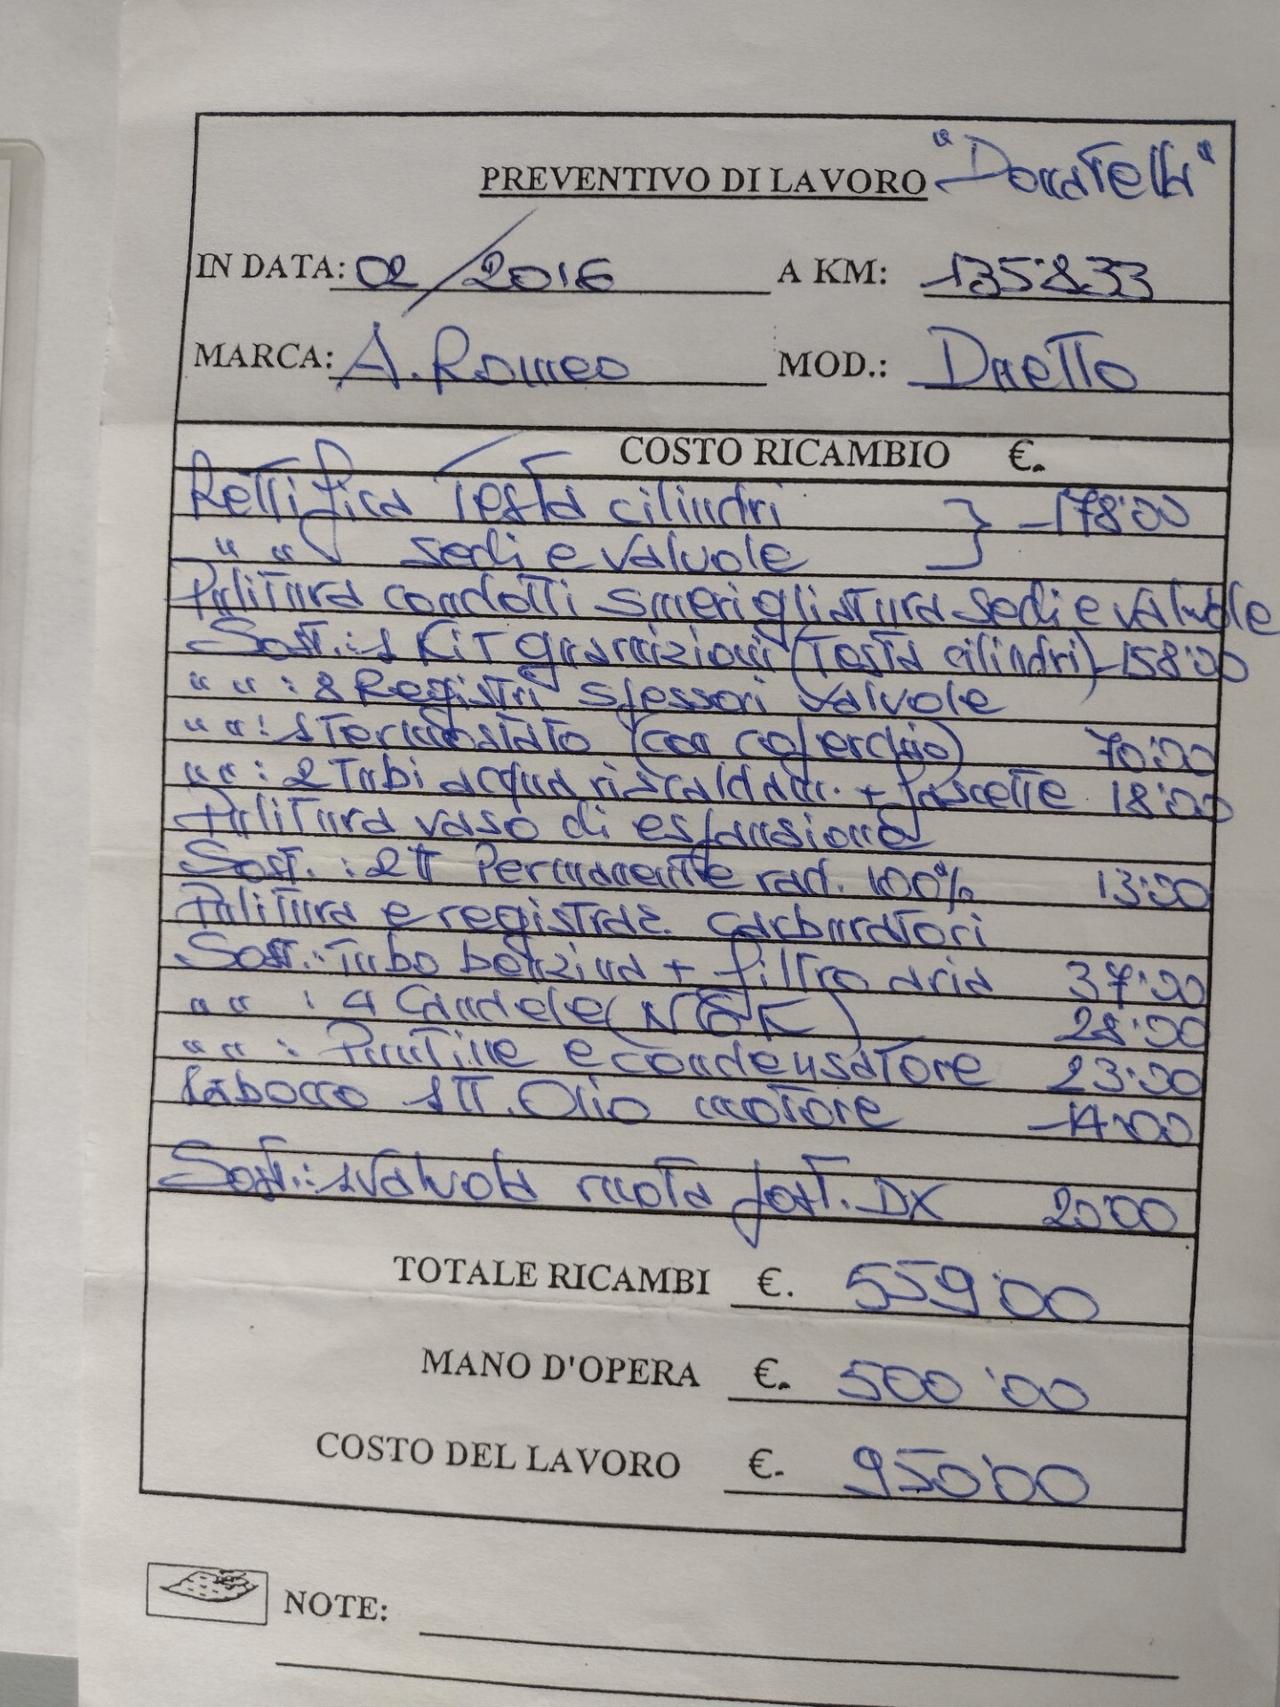 PREVENTIVO DI LAVORO "Donatelli"
IN DATA: 02/2016 A KM: 135'833
MARCA: A. Romeo MOD.: Duetto
COSTO RICAMBIO €.
Rettifica Testa cilindri } 178'00
" " sedi e valvole
Pulitura condotti smerigliatura sedi e valvole
Sost.: 1 Kit guarnizioni (Testa cilindri) 158'00
" " : 8 Registri spessori valvole
" " : 1 Termostato (con coperchio) 70'00
" " : 2 Tubi acqua riscaldam. + fascette 18'00
Pulitura vaso di espansione
Sost. : 2 lt Permanente rad. 100% 13'00
Pulitura e registraz. carburatori
Sost.: Tubo benzina + filtro aria 37'00
" " : 4 Candele (NGK) 28'00
" " : Puntine e condensatore 23'00
Rabocco 1 lt. Olio motore 14'00
Sost.: 1 valvola ruota post. DX 20'00
TOTALE RICAMBI €. 559'00
MANO D'OPERA €. 500'00
COSTO DEL LAVORO €. 950'00
NOTE: